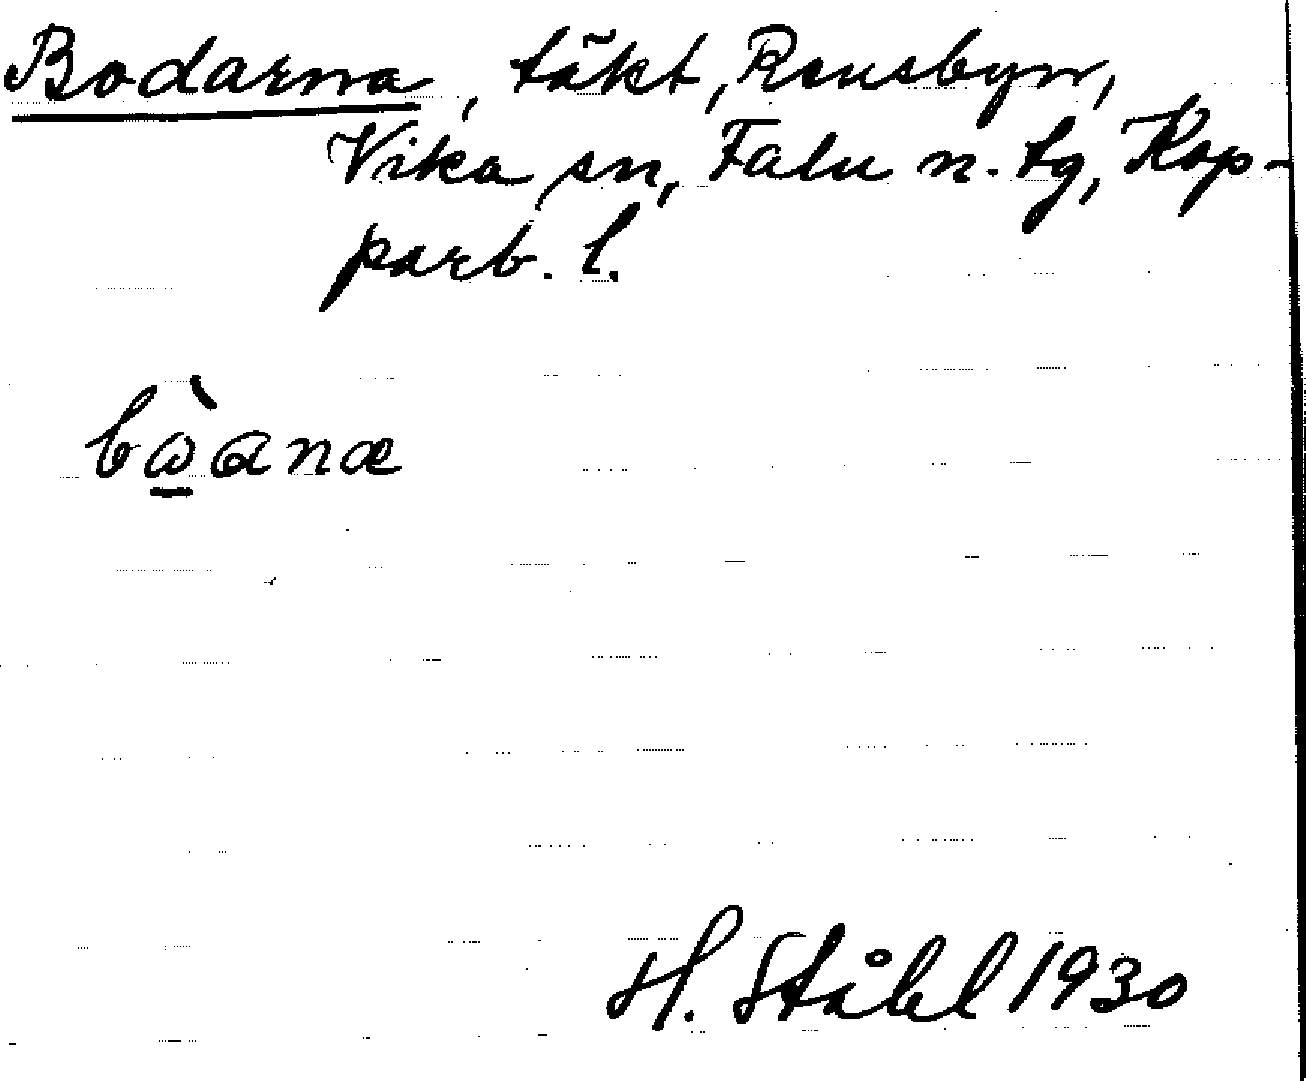 Bodarna, täkt, Rensbyn,
Vika sn, Falu n. tg, Kop-
parb. l.
bὼ̲ɑnæ
H. Ståhl 1930